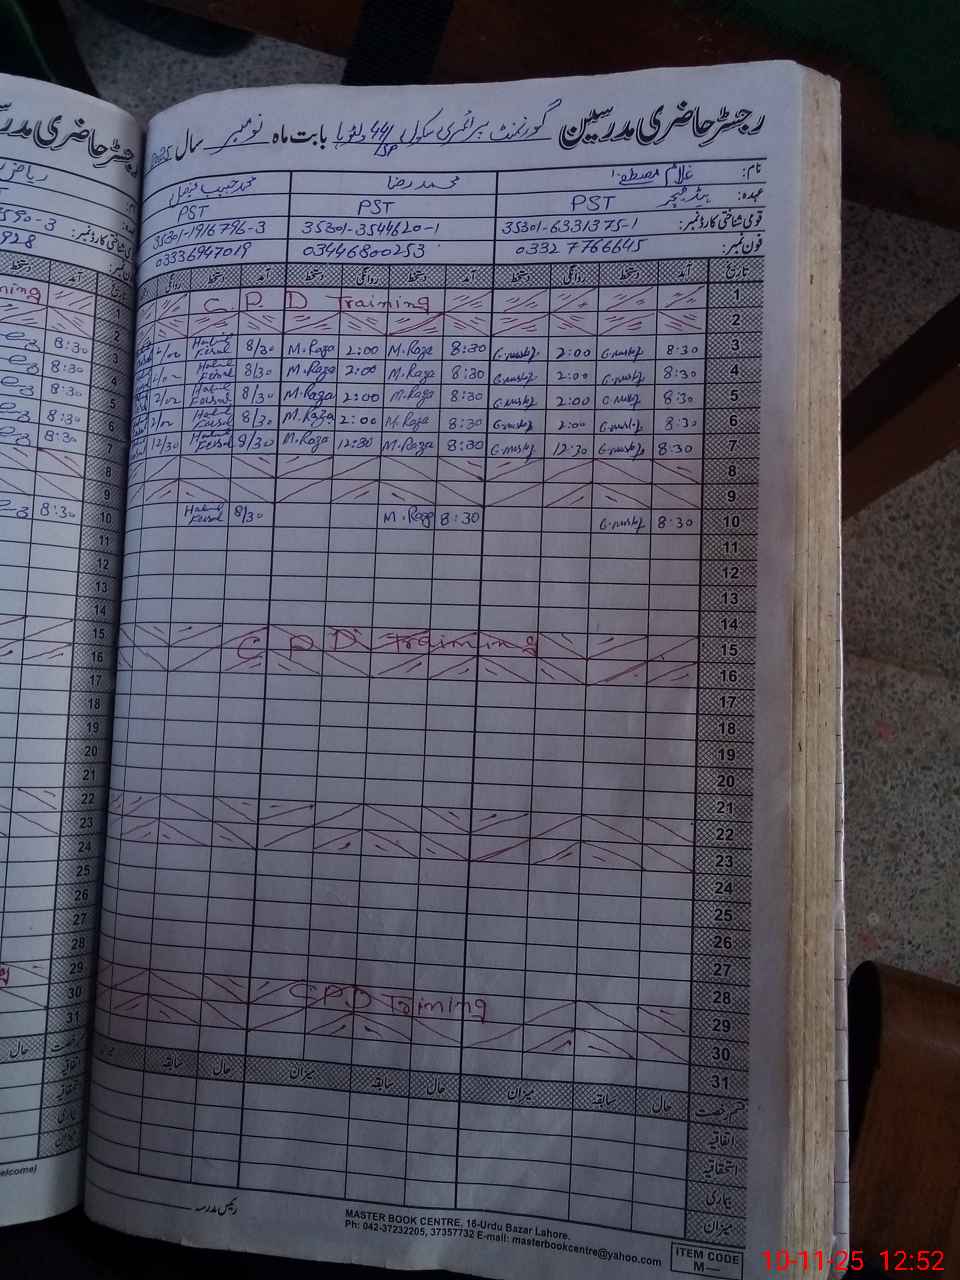 رجسٹر حاضری مدرسین گورنمنٹ پرائمری سکول 44/SP بابت ماہ نومبر سال 2025
نام: غلام مصطفیٰ محمد رضا محمد حبیب فیصل
عہدہ: ہیڈ ٹیچر PST PST PST
قومی شناختی کارڈ نمبر: 35301-6331375-1 35301-3544620-1 35301-1916796-3
فون نمبر: 03327766645 03446800253 03336947019
تاریخ آمد دستخط روانگی دستخط آمد دستخط روانگی دستخط آمد دستخط روانگی
1 C P D Training
2
3 8:30 G.mustf 2:00 G.mustf 8:30 M.Raza 2:00 M.Raza 8/30 Habib Faisal 2/00
4 8:30 G.mustf 2:00 G.mustf 8:30 M.Raza 2:00 M.Raza 8/30 Habib Faisal 2/00
5 8:30 G.mustf 2:00 G.mustf 8:30 M.Raza 2:00 M.Raza 8/30 Habib Faisal 2/00
6 8:30 G.mustf 2:00 G.mustf 8:30 M.Raza 2:00 M.Raza 8/30 Habib Faisal 2/00
7 8:30 G.mustf 12:30 G.mustf 8:30 M.Raza 12:30 M.Raza 8/30 Habib Faisal 12/30
8
9
10 8:30 G.mustf 8:30 M.Raza 8/30 Habib Faisal
11
12
13
14
15 C P D Training
16
17
18
19
20
21
22
23
24
25
26
27
28
29 CPD Training
30
31
قسم رخصت حال سابقہ میزان حال سابقہ میزان حال سابقہ میزان
اتفاقیہ
استحقاقیہ
بیماری
میزان
رئیس مدرسہ
MASTER BOOK CENTRE, 16-Urdu Bazar Lahore.
Ph: 042-37232205, 37357732 E-mail: masterbookcentre@yahoo.com
ITEM CODE
M—
10-11-25 12:52